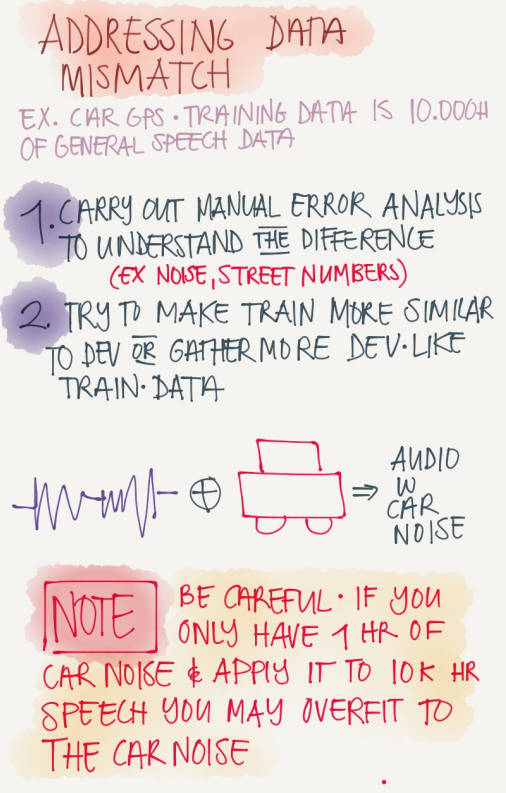 ADDRESSING DATA
MISMATCH
EX. CAR GPS · TRAINING DATA IS 10.000H
OF GENERAL SPEECH DATA
1. CARRY OUT MANUAL ERROR ANALYSIS
TO UNDERSTAND THE DIFFERENCE
(EX NOISE, STREET NUMBERS)
2. TRY TO MAKE TRAIN MORE SIMILAR
TO DEV OR GATHER MORE DEV·LIKE
TRAIN·DATA
AUDIO
W
CAR
NOISE
NOTE
BE CAREFUL · IF YOU
ONLY HAVE 1 HR OF
CAR NOISE & APPLY IT TO 10K HR
SPEECH YOU MAY OVERFIT TO
THE CAR NOISE